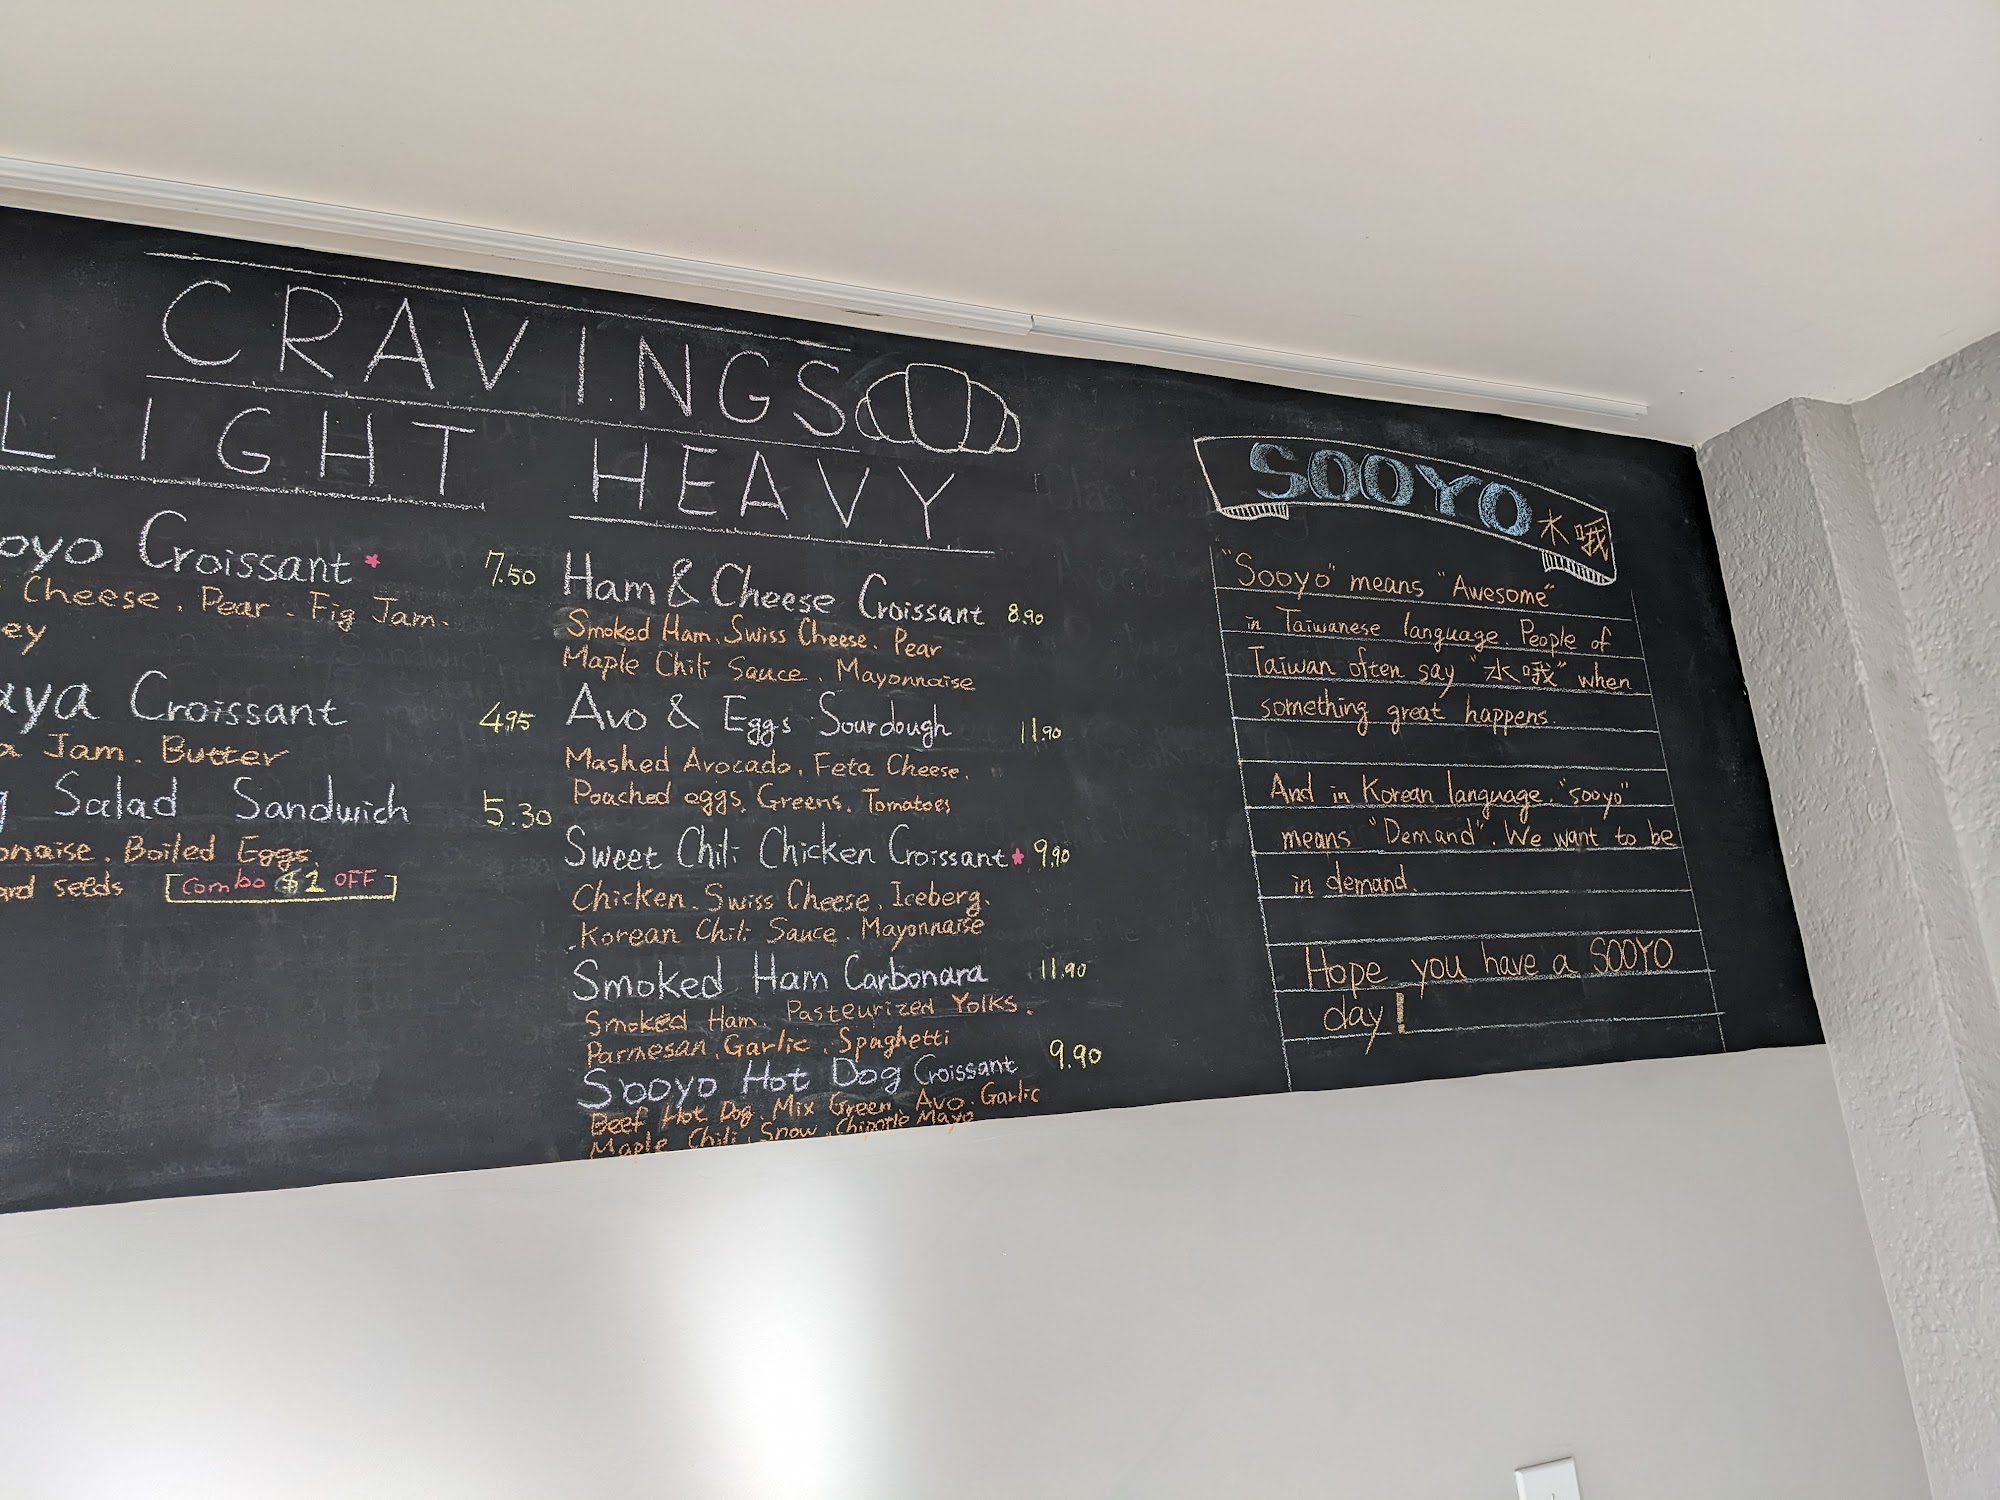 CRAVINGS
LIGHT
oyo Croissant* 7.50
Cheese. Pear. Fig Jam.
ey
aya Croissant 4.95
a Jam. Butter
Salad Sandwich 5.30
onaise. Boiled Eggs.
ard seeds [Combo $1 OFF]
HEAVY
Ham & Cheese Croissant 8.90
Smoked Ham. Swiss Cheese. Pear
Maple Chili Sauce. Mayonnaise
Avo & Eggs Sourdough 11.90
Mashed Avocado. Feta Cheese.
Poached eggs. Greens. Tomatoes
Sweet Chili Chicken Croissant* 9.90
Chicken. Swiss Cheese. Iceberg.
Korean Chili Sauce. Mayonnaise
Smoked Ham Carbonara 11.90
Smoked Ham. Pasteurized Yolks.
Parmesan. Garlic. Spaghetti
Sooyo Hot Dog Croissant 9.90
Beef Hot Dog. Mix Green. Avo. Garlic
Maple Chili. Snow. Chipotle Mayo
SOOYO 水哦
"Sooyo" means "Awesome"
in Taiwanese language. People of
Taiwan often say "水哦" when
something great happens.
And in Korean language. "sooyo"
means "Demand". We want to be
in demand.
Hope you have a SOOYO
day!